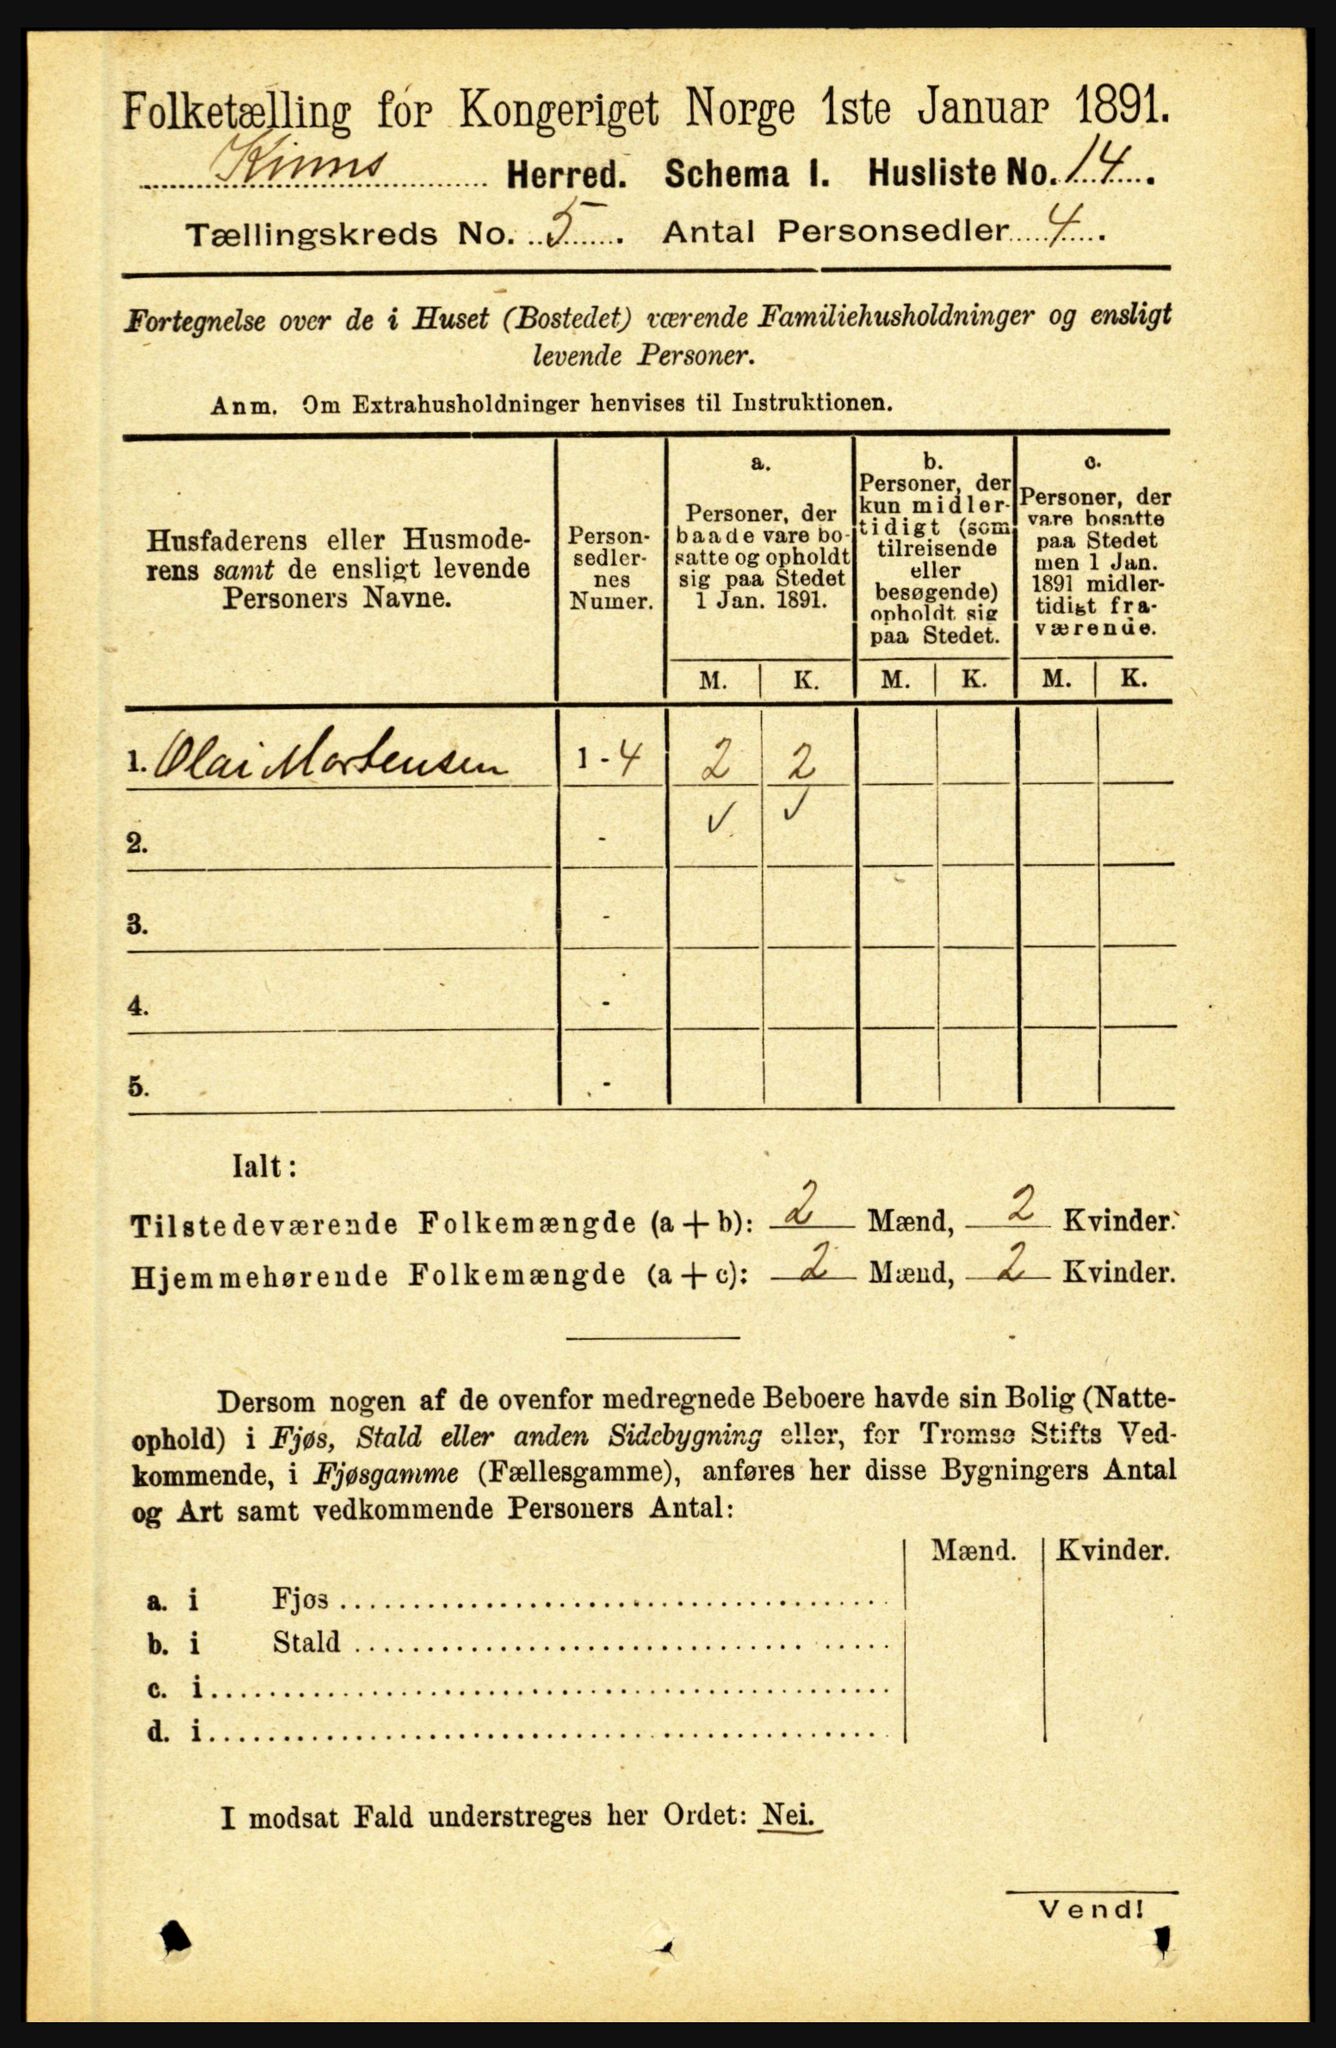 Folketælling for Kongeriget Norge 1ste Januar 1891.
Kinns Herred. Schema I. Husliste No. 14.
Tællingskreds No. 5. Antal Personsedler 4.
Fortegnelse over de i Huset (Bostedet) værende Familiehusholdninger og ensligt
levende Personer.
Anm. Om Extrahusholdninger henvises til Instruktionen.
Husfaderens eller Husmode-
rens samt de ensligt levende
Personers Navne.
Person-
sedler-
nes
Numer.
a.
Personer, der
baade vare bo-
satte og opholdt
sig paa Stedet
1 Jan. 1891.
b.
Personer, der
kun midler-
tidigt (som
tilreisende
eller
besøgende)
opholdt sig
paa Stedet.
c.
Personer, der
vare bosatte
paa Stedet
men 1 Jan.
1891 midler-
tidigt fra-
værende.
M. K. M. K. M. K.
1. Olai Mortensen 1 - 4 2 2
✓ ✓
2. -
3. -
4. -
5. -
Ialt:
Tilstedeværende Folkemængde (a + b): 2 Mænd, 2 Kvinder.
Hjemmehørende Folkemængde (a + c): 2 Mænd, 2 Kvinder.
Dersom nogen af de ovenfor medregnede Beboere havde sin Bolig (Natte-
ophold) i Fjøs, Stald eller anden Sidebygning eller, for Tromsø Stifts Ved-
kommende, i Fjøsgamme (Fællesgamme), anføres her disse Bygningers Antal
og Art samt vedkommende Personers Antal:
Mænd. Kvinder.
a. i Fjøs
b. i Stald
c. i
d. i
I modsat Fald understreges her Ordet: Nei.
Vend!